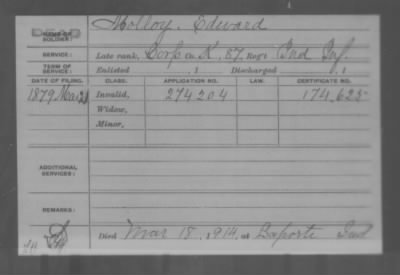 Molloy, Edward
NAME OF SOLDIER:
SERVICE: Late rank, Corp Co. K, 87, Reg't Ind Inf.
TERM OF SERVICE: Enlisted , 1 Discharged , 1
DATE OF FILING. CLASS. APPLICATION NO. LAW. CERTIFICATE NO.
1879 Mar 21 Invalid, 274204 174,625
Widow,
Minor,
ADDITIONAL SERVICES:
REMARKS:
Died Mar 18, 1914, at Laporte Ind